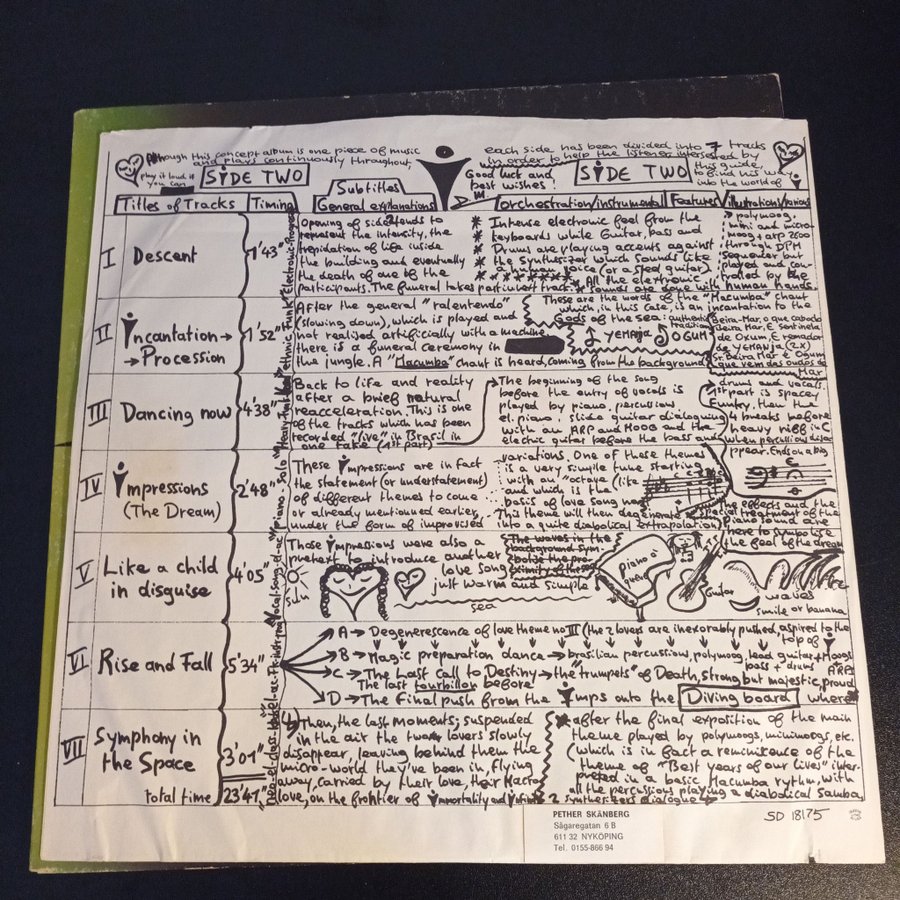 Although this concept album is one piece of music
and plays continuously throughout,
each side has been divided into 7 tracks
in order to help the listener interested by
this guide
to find his way
into the world of
play it loud if
you can
SIDE TWO
Good luck and
best wishes!
SIDE TWO
Titles of Tracks
Timing
Subtitles
General explanations
Orchestration/instrumental
Features
illustrations/various
I
Descent
1'43"
Opening of side 2 tends to
represent the intensity, the
trepidation of life inside
the building and eventually
the death of one of the
participants. The funeral takes part in next track.
* Intense electronic feel from the
* keyboards while Guitar, bass and
* Drums are playing accents against
* the Synthesizer which sounds like
a human voice (or a steel guitar).
* All the electronic
* sounds are done with human hands.
→ polymoog,
mini and micro-
moog, arp 2600
through DPM
sequencer but
played and con-
trolled by the
II
Incantation →
→ Procession
1'52"
After the general "ralentendo"
(slowing down), which is played and
not realised artificially with a machine
there is a funeral ceremony in
the jungle. A "Macumba" chant is heard, coming from the background
These are the words of the "Macumba" chant
which, in this case, is an incantation to the
Gods of the sea: authentic
tradition
YEMANJA
OGUM
Beira-Mar, o que cabocla
Beira Mar, E sentinela
de Oxum, E remador
de YEMANJA (2X)
Sr. Beira Mar é Ogum
que vem das ondas do
Mar
III
Dancing now
4'38"
Back to life and reality
after a brief natural
reacceleration. This is one
of the tracks which has been
recorded "live" in Brasil in
one take (1st part)
The beginning of the song
before the entry of vocals is
played by piano, percussions
el. piano, slide guitar dialoguing
with an ARP and MOOG and the
electric guitar before the bass and
drums and vocals.
1st part is spacey
Funky, then the
4 breaks before
heavy riff in C
when percussions disap-
ppear. Ends on a big
IV
Impressions
(The Dream)
2'48"
These Impressions are in fact
the statement (or understatement)
of different themes to come
or already mentionned earlier,
under the form of improvised
variations. One of these themes
is a very simple tune starting
with an "octave (like
and which is the
basis of love song now
This theme will then degenerate
into a quite diabolical extrapolation.
The effects and the
special treatment of the
Piano sound are
here to symbolise
the feel of the dream
V
Like a child
in disguise
4'05"
Those Impressions were also a
pretext to introduce another
love song
just warm and simple
sun
sea
piano à
queue
Guitar
waves
smile or banana
VI
Rise and Fall
5'34"
A → Degenerescence of love theme no III (the 2 lovers are inexorably pushed, aspired to the
top of
B → Magic preparation dance → brasilian percussions, polymoog, lead guitar + Moogs
bass + drums
ARPS
C → The Last Call to Destiny → the "trumpets" of Death, strong but majestic, proud
The last tourbillon before
D → The final push from the Imps onto the Diving board where
VII
Symphony in
the Space
3'01"
Then, the last moments; suspended
in the air the two lovers slowly
disappear, leaving behind them the
micro-world they've been in, flying
away, carried by their love, their Macro
love, on the frontier of Immortality and Infinite
* after the final exposition of the main
theme played by polymoogs, minimoogs, etc.
(which is in fact a reminiscence of the
theme of "Best years of our lives" inter-
preted in a basic Macumba rythm, with
all the percussions playing a diabolical samba,
2 synthesizers dialogue
total time
23'47"
PETHER SKÄNBERG
Sågaregatan 6 B
611 32 NYKÖPING
Tel. 0155-866 94
SD 18175